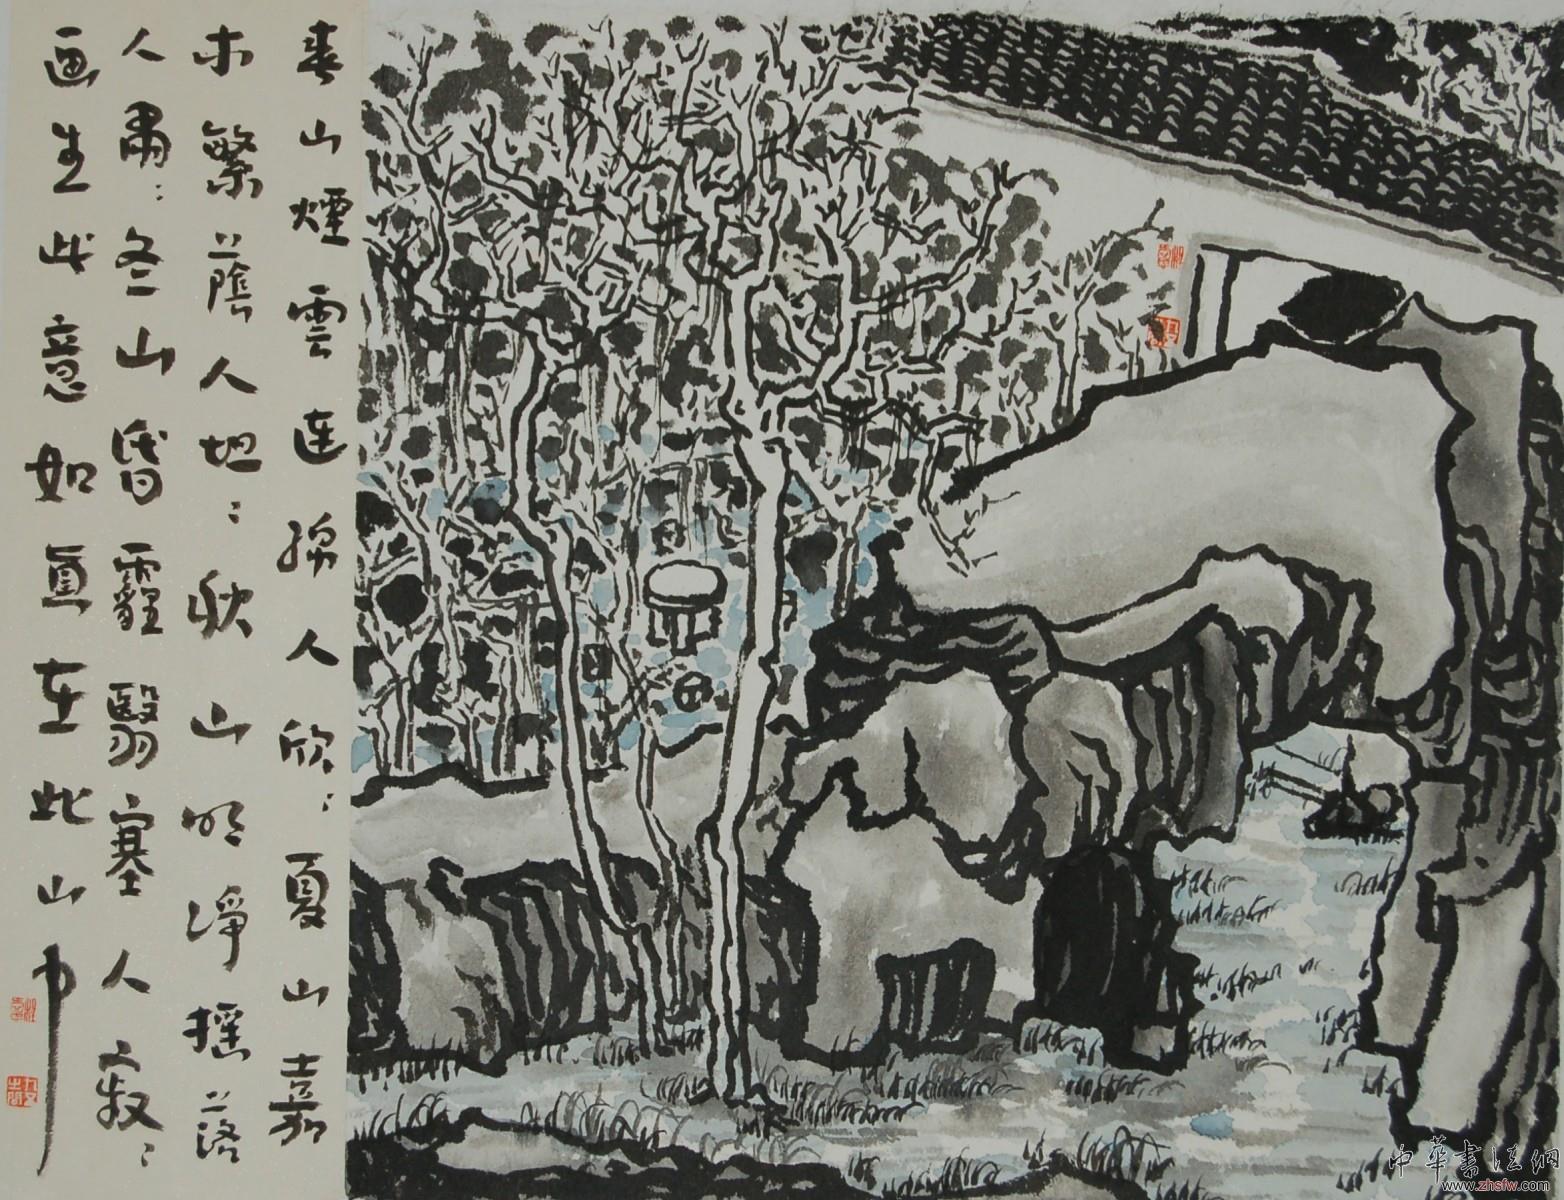 春山煙雲連緜人欣：夏山嘉
木繁蔭人坦：秋山明淨摇落
人肅：冬山昏霾翳塞人寂：
画生此意如真在此山中
中华书法网
www.zhsfw.com